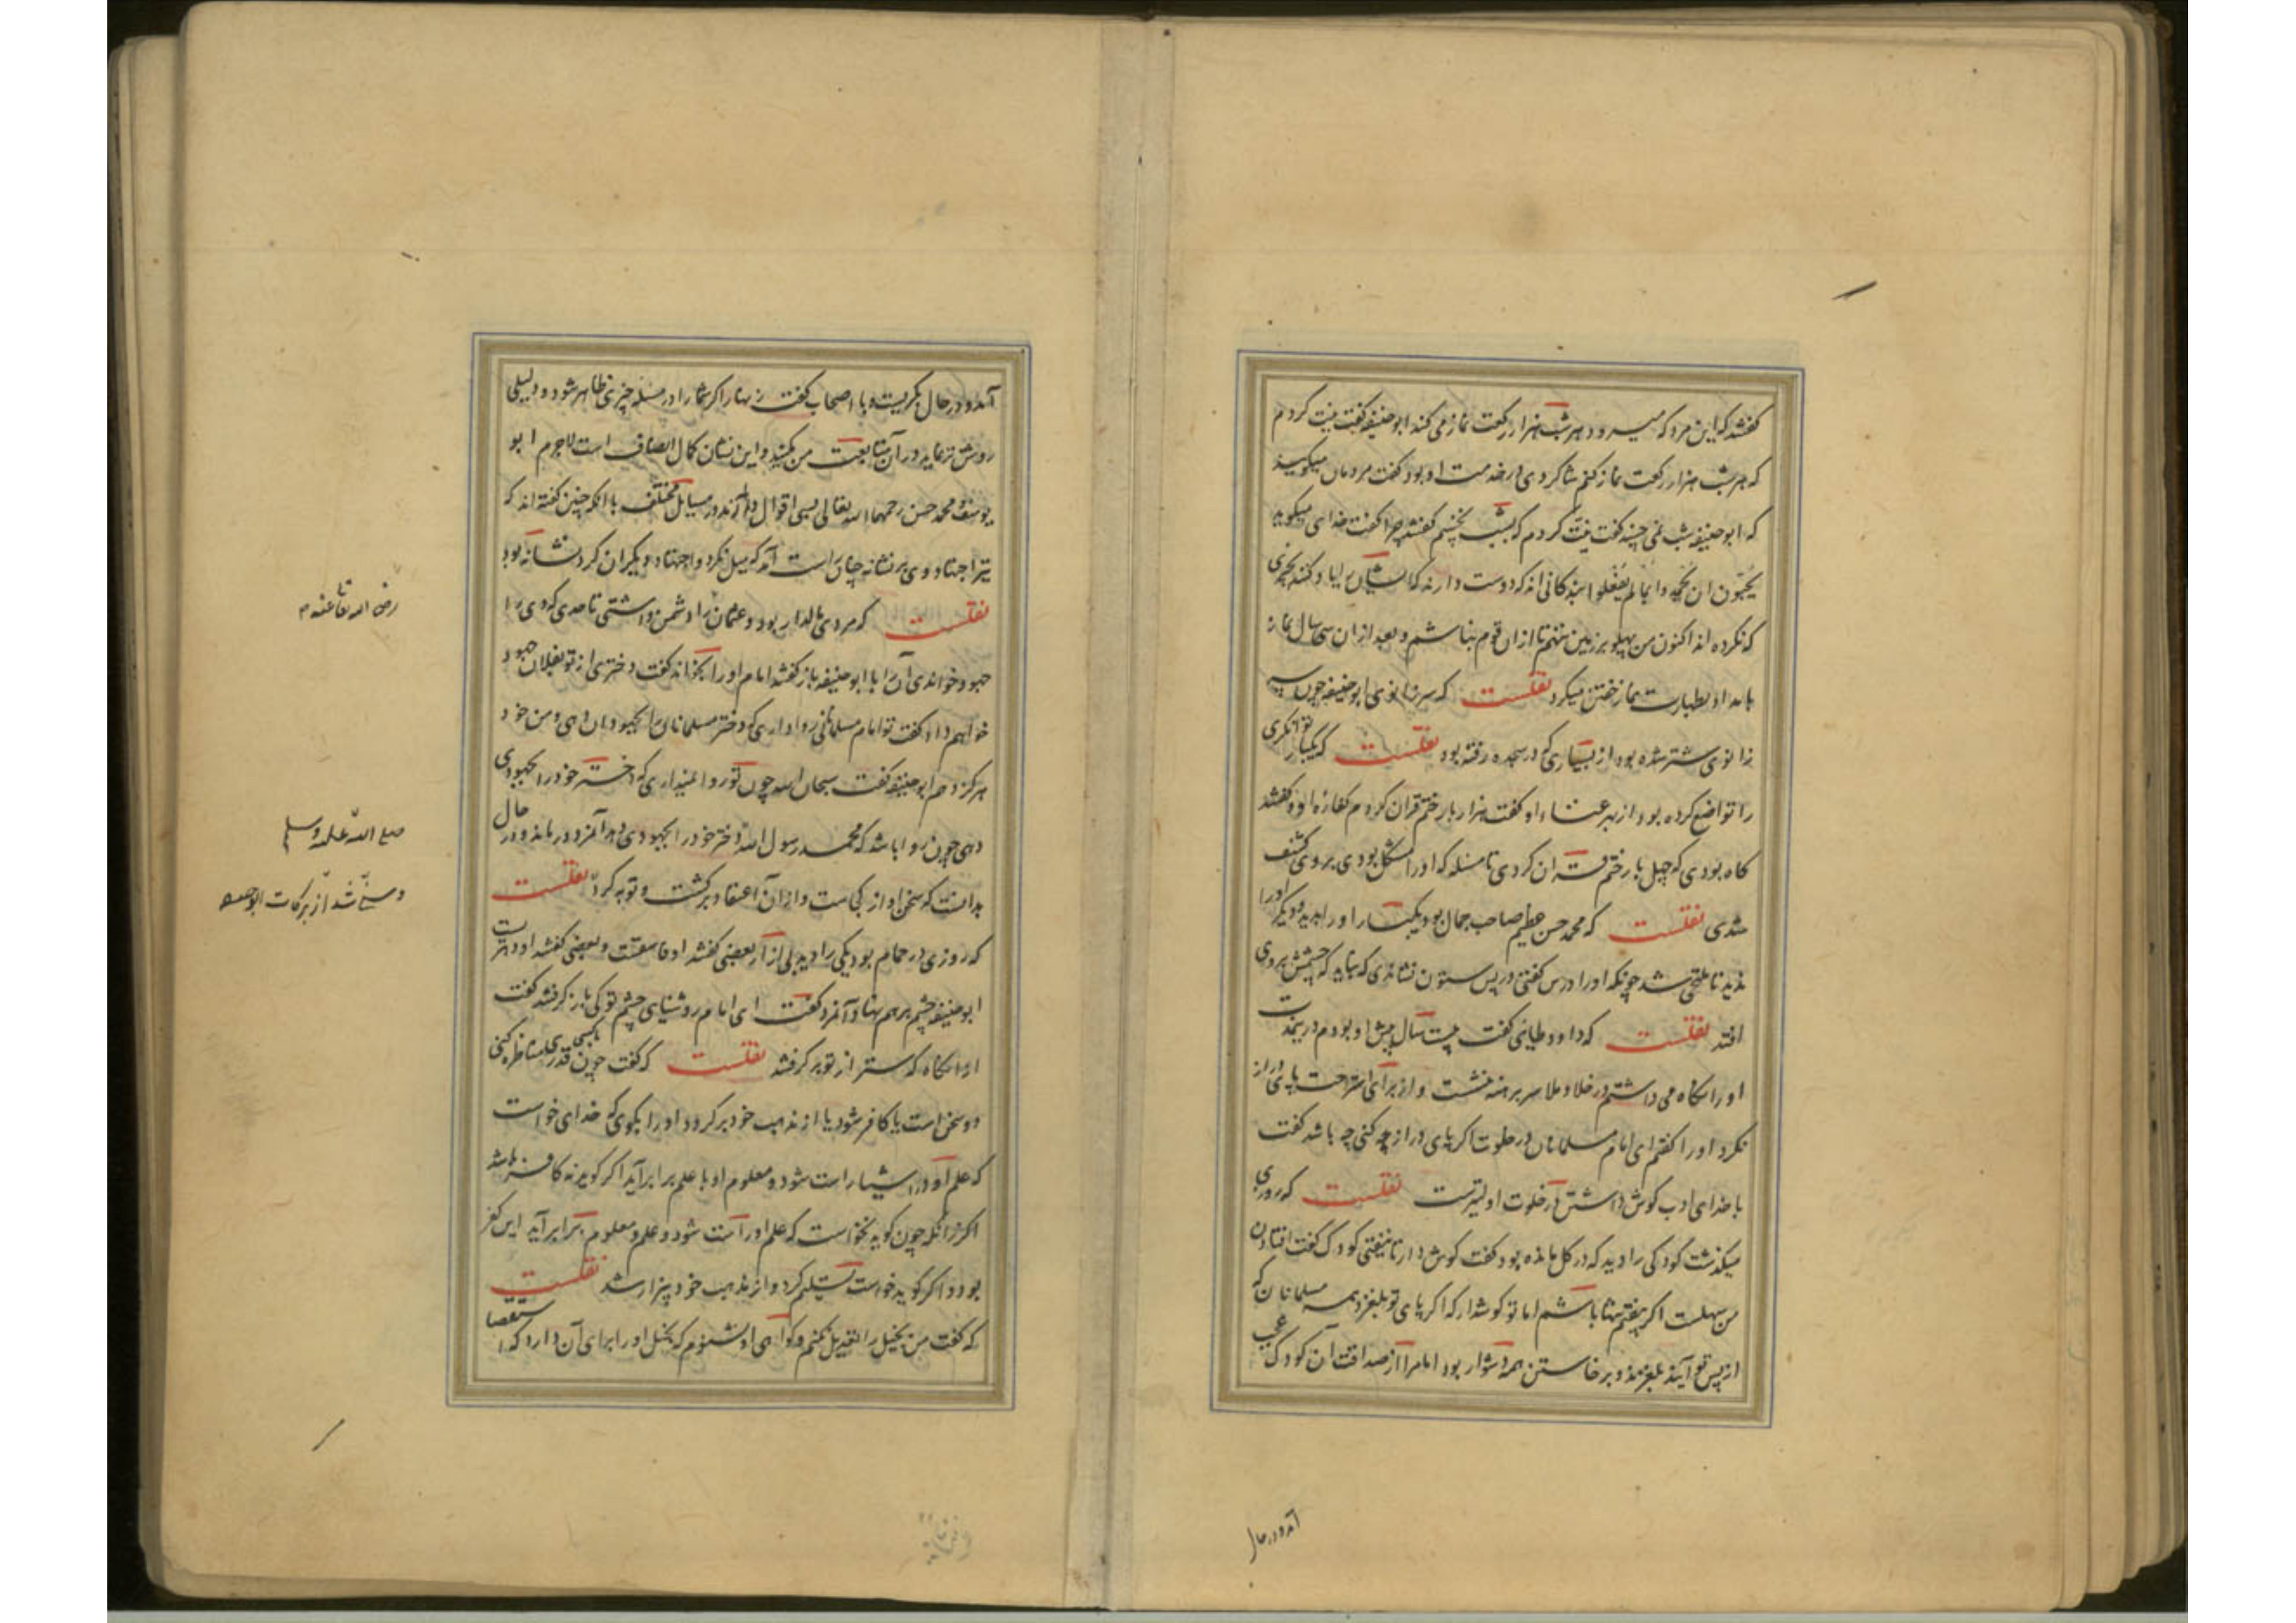 گفتند که این مرد که میرود هر شب هزار رکعت نماز می کند ابوحنیفه گفت نیت کردم
که هر شب هزار رکعت نماز کنم شاکردی در خدمت او بود گفت مردمان میگویند
که ابوحنیفه شب نمی خسپد گفت نیّت کردم که بشب نخسپم گفتند چرا گفت خدای میگوید
یُحبّون ان یُحمدوا بما لم یفعلوا بندگانی اند که دوست دارند که ایشان را یاد کنند بچیزی
که نکرده اند اکنون من پهلو بر زمین ننهم تا از ان قوم نباشم و بعد از ان سی سال نماز
بامداد بطهارت نماز خفتن میکرد نقلست که سر زانوی ابوحنیفه چون سر
زانوی شتر شده بود از بسیاری که در سجده رفته بود نقلست که یکبار توانکری
را تواضع کرده بود از بهر غناء او گفت هزار بار ختم قران کردم کفارة او و گفتند
کاه بودی که چهل بار ختم قران کردی تا مسئله که او را مشکل بودی بروی کشف
شدی نقلست که محمد حسن عظیم صاحب جمال بود یکبار او را بدید و دیگر او را
ندید تا ملتحی شد چونکه او را درس گفتی در پس ستون نشاندی که نباید که چشمش بروی
افتد نقلست که داود طایی گفت بیست سال پیش او بودم درین مدت
او را نگاه می داشتم در خلا و ملا سر برهنه ننشست و از برای استراحت پای دراز
نکرد او را گفتم ای امام مسلمانان در خلوت اکر پای دراز کنی چه باشد گفت
با خدای ادب کوش داشتن در خلوت اولیترست نقلست که روزی
میگذشت کودکی را دید که در کل مانده بود گفت کوش دار تا نیفتی کودک گفت افتادن
من سهلست اکر بیفتم تنها باشم اما تو کوش دار که اکر پای تو بلغزد همه مسلمانان که
از پس تو آیند بلغزند و برخاستن همه دشوار بود امام را از صداقت آن کودک عجب
آمد و در حال
آمد و در حال بکریست و با اصحاب گفت زنهار اکر شما را در مسئله چیزی ظاهر شود و دلیلی
روشن تر نماید در آن متابعت من مکنید و این نشان کمال انصاف است لاجرم ابو
یوسف و محمد حسن رحمهما الله تعالی بسی اقوال دارند در مسایل مختلف با انکه چنین گفته اند که
تیر اجتهاد وی بر نشانه چنان راست آمد که میل نکرد و اجتهاد دیکران کرد نشانه بود
نقلست که مردی مالدار بود و عثمان را دشمن داشتی تا حدی که وی را
جهود خواندی آن را با ابوحنیفه باز گفتند امام او را بخواند گفت دختری از تو بفلان جهود
خواهم داد گفت تو امام مسلمانی روا داری که دختر مسلمانان را بجهودان دهی و من خود
هرکز ندهم ابوحنیفه گفت سبحان الله چون تو روا نمیداری که دختر خود را بجهودی
دهی چون روا باشد که محمد رسول الله دختر خود را بجهودی دهد آنمرد در ماند و در حال
بدانست که سخن او از کجاست و از آن اعتقاد برکشت و توبه کرد نقلست
که روزی در حمام بود یکی را دید بی ازار بعضی گفتند او فاسقست و بعضی گفتند او دهریست
ابوحنیفه چشم بر هم نهاد آنمرد گفت ای امام روشنای چشم تو کی باز گرفتند گفت
از انگاه که ستر از تو بر گرفتند نقلست که گفت چون با کسی قدری مناظره کنی
دو سخن است یا کافر شود یا از مذهب خود برگردد او را بگوی که خدای خواست
که علم او در ایشیا راست شود و معلوم او با علم برابر آید اکر کوید نه کافر باشد
اکر زانکه چون کوید نخواست که علم او راست شود و علم و معلوم برابر آید این کفر
بود و اکر کوید خواست تسلیم کرد و از مذهب خود بیزار شد نقلست
که گفت من بخیل را تعدیل نکنم و کواهی او نشنوم که بخل او را برای آن دارد که استقصا
رضی الله تعا عنه
صلی الله علیه وسلم
و سنی شد از برکات ابوحنیفه